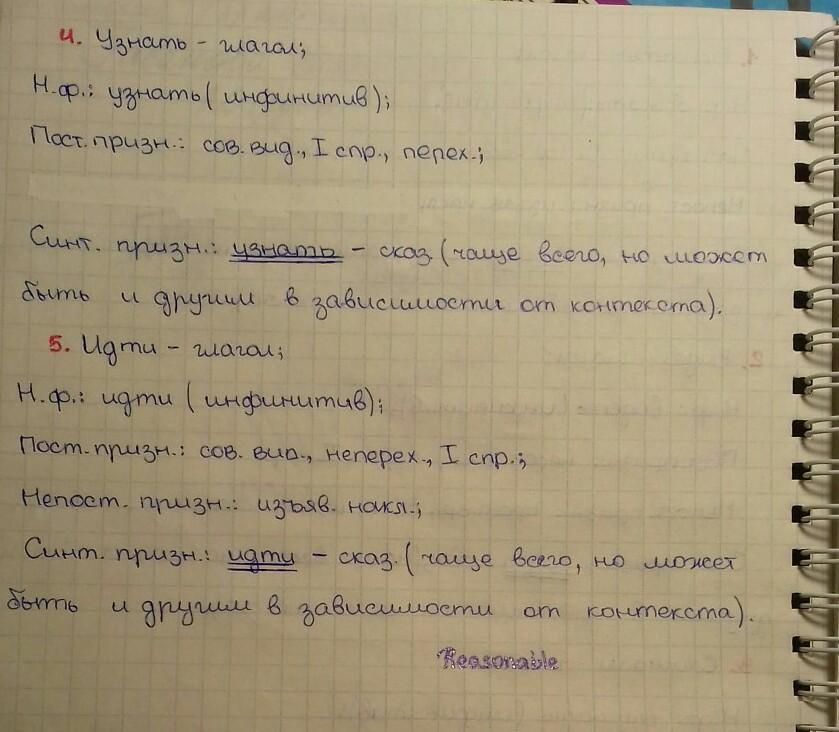 4. Узнать - глагол;
Н.ф.: узнать (инфинитив);
Пост. призн.: сов. вид., I спр., перех.;
Синт. призн.: узнать - сказ. (чаще всего, но может
быть и другим в зависимости от контекста).
5. Идти - глагол;
Н.ф.: идти (инфинитив);
Пост. призн.: сов. вид., неперех., I спр.;
Непост. призн.: изъяв. накл.;
Синт. призн.: идти - сказ. (чаще всего, но может
быть и другим в зависимости от контекста).
Reasonable